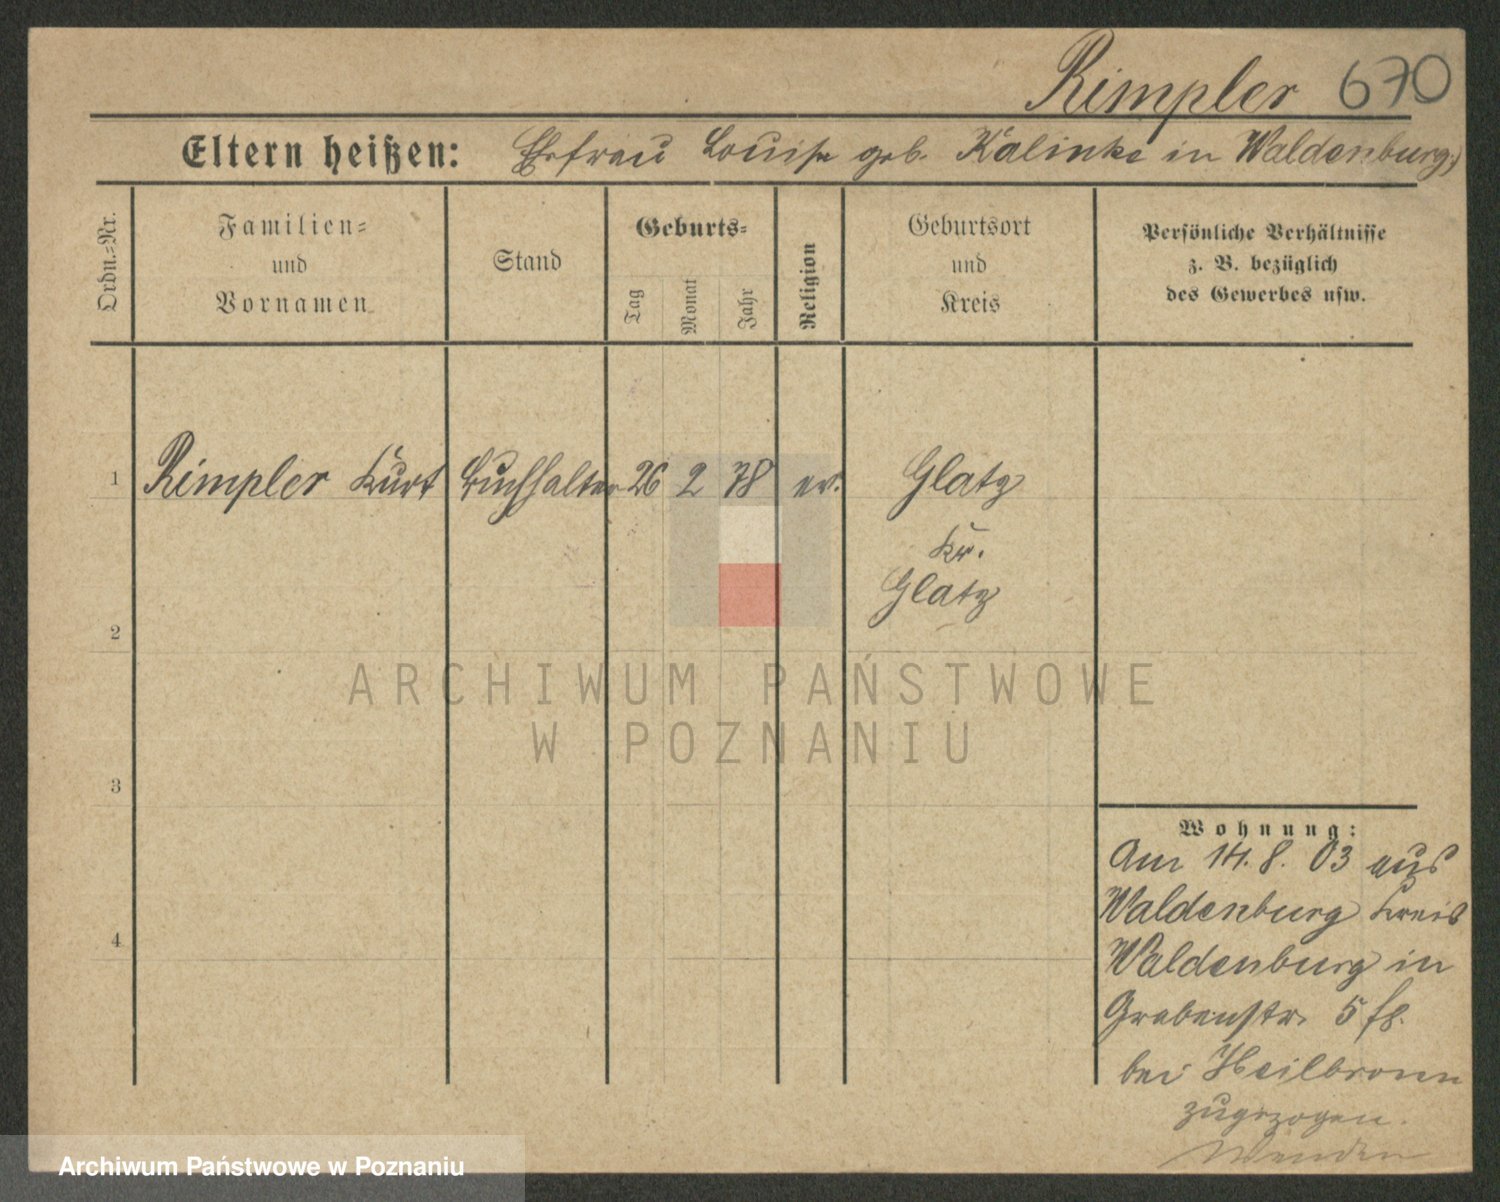 Rimpler 670
Eltern heißen: Ehefrau Louise geb. Kalinke in Waldenburg
Ordn.=Nr.
Familien=
und
Vornamen
Stand
Geburts=
Tag
Monat
Jahr
Religion
Geburtsort
und
Kreis
Persönliche Verhältnisse
z. B. bezüglich
des Gewerbes usw.
1 Rimpler Kurt Buchhalter 26 2 78 ev. Glatz
Kr.
Glatz
2
ARCHIWUM PAŃSTWOWE
W POZNANIU
3
4
Wohnung:
Am 14. 8. 03 aus
Waldenburg Kreis
Waldenburg in
Grabenstr. 5
bei Heilbronn
zugezogen.
Wenden
Archiwum Państwowe w Poznaniu